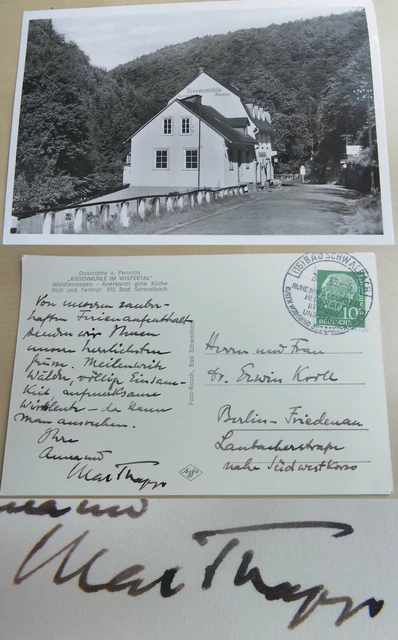 Riesenmühle
Pension
Gaststätte u. Pension
„RIESENMÜHLE IM WISPERTAL"
Waldterrassen - Anerkannt gute Küche
Post und Fernruf: 593 Bad Schwalbach
Von unserem zauber-
haften Ferienaufenthalt
senden wir Ihnen
unsere herzlichsten
Grüsse. Meilenweite
Wälder, völlige Einsam-
keit, aufmerksame
Wirtsleute – da kann
man ausruhen.
Ihre
Anna und
Max Thapp
Foto-Rauch, Bad Schwalbach
Agfa
(16) BAD SCHWALBACH
10
Herrn und Frau
Dr. Erwin Kroll
Berlin-Friedenau
Laubacherstrasse
nahe Südwestkorso
und